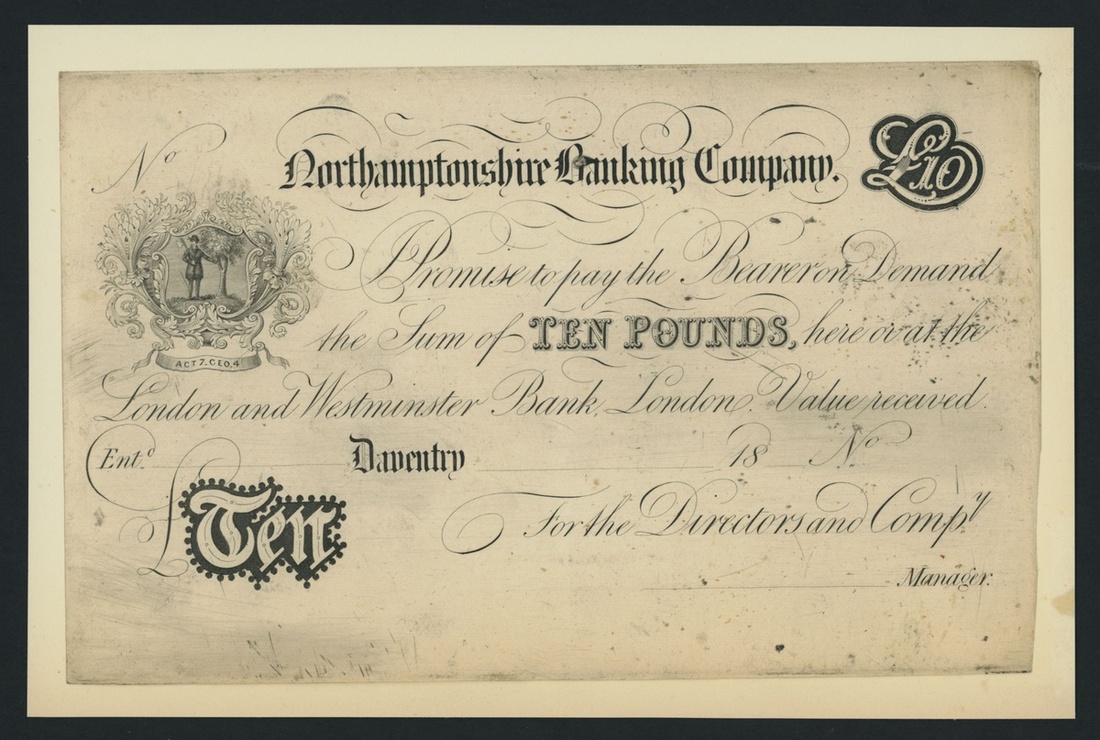 Nº
Northamptonshire Banking Company.
£10
I Promise to pay the Bearer on Demand
the Sum of TEN POUNDS, here or at the
ACT 7. GEO. 4
London and Westminster Bank, London. Value received.
Entᵈ Daventry 18 Nº
£Ten
For the Directors and Compʸ.
Manager.